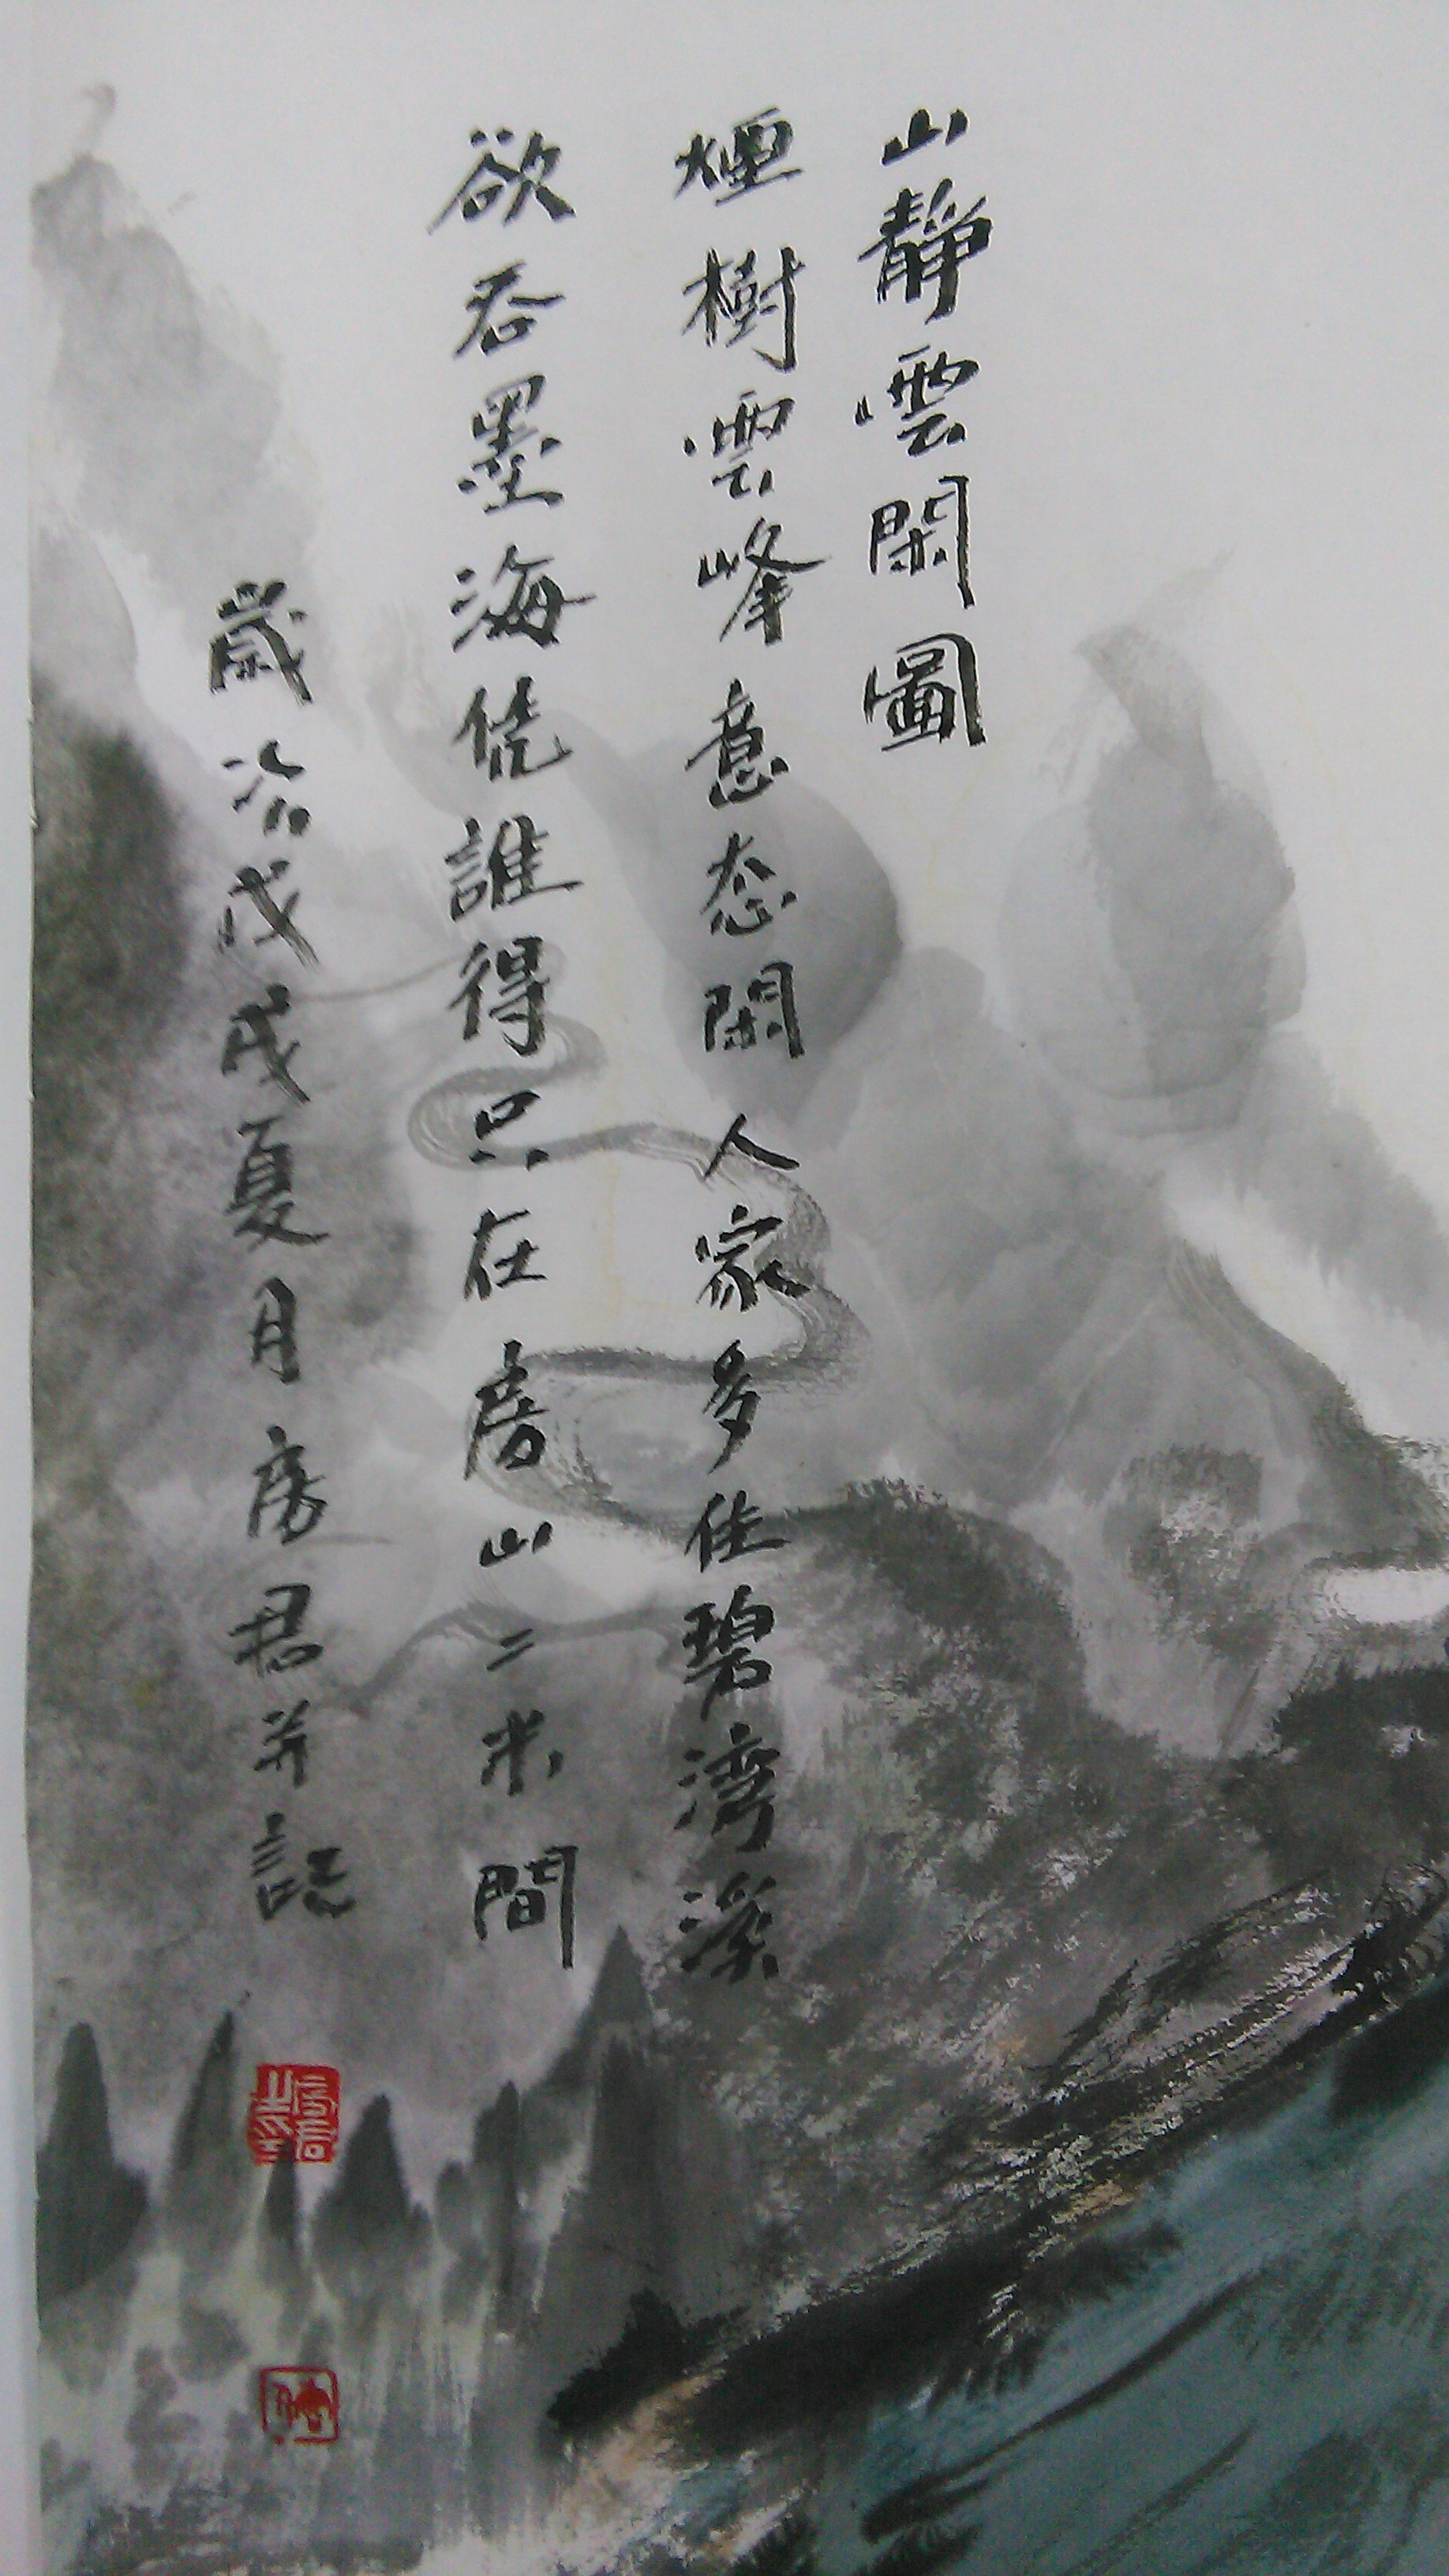 山靜雲閑圖
煙樹雲峰意态閑人家多住碧湾溪
欲吞墨海凭誰得只在房山二米間
歲次戊戌夏月房君并記